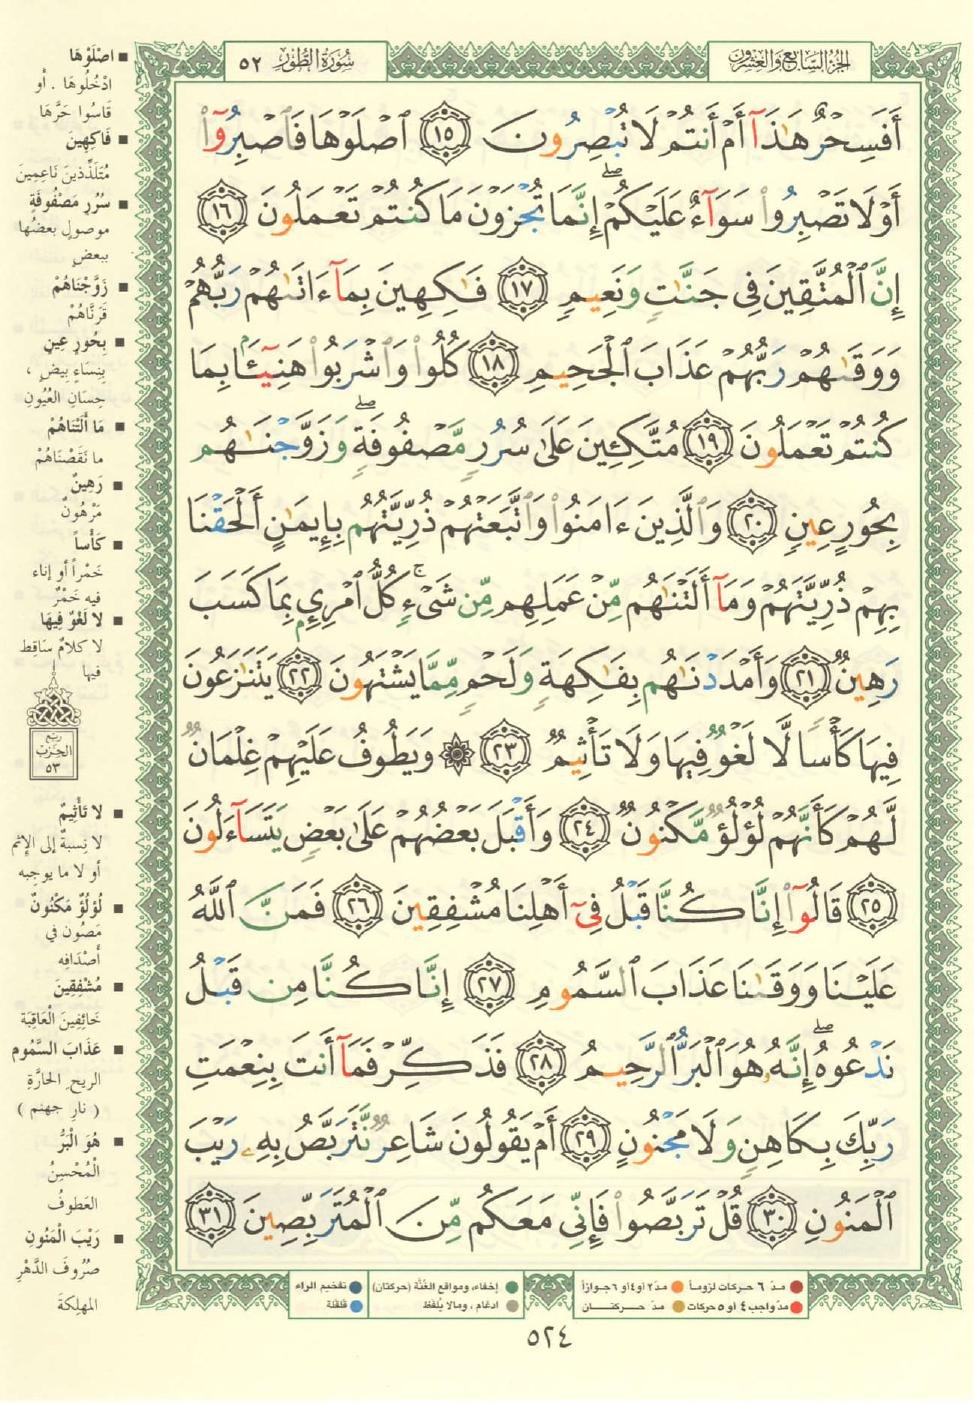 الجزء السابع والعشرون
سورة الطور ٥٢
أَفَسِحْرٌ هَٰذَا أَمْ أَنتُمْ لَا تُبْصِرُونَ ١٥ ٱصْلَوْهَا فَٱصْبِرُوٓا۟
أَوْ لَا تَصْبِرُوا۟ سَوَآءٌ عَلَيْكُمْ ۖ إِنَّمَا تُجْزَوْنَ مَا كُنتُمْ تَعْمَلُونَ ١٦
إِنَّ ٱلْمُتَّقِينَ فِى جَنَّٰتٍ وَنَعِيمٍ ١٧ فَٰكِهِينَ بِمَآ ءَاتَىٰهُمْ رَبُّهُمْ
وَوَقَىٰهُمْ رَبُّهُمْ عَذَابَ ٱلْجَحِيمِ ١٨ كُلُوا۟ وَٱشْرَبُوا۟ هَنِيٓـًٔۢا بِمَا
كُنتُمْ تَعْمَلُونَ ١٩ مُتَّكِـِٔينَ عَلَىٰ سُرُرٍ مَّصْفُوفَةٍ ۖ وَزَوَّجْنَٰهُم
بِحُورٍ عِينٍ ٢٠ وَٱلَّذِينَ ءَامَنُوا۟ وَٱتَّبَعَتْهُمْ ذُرِّيَّتُهُم بِإِيمَٰنٍ أَلْحَقْنَا
بِهِمْ ذُرِّيَّتَهُمْ وَمَآ أَلَتْنَٰهُم مِّنْ عَمَلِهِم مِّن شَىْءٍ ۚ كُلُّ ٱمْرِئٍۭ بِمَا كَسَبَ
رَهِينٌ ٢١ وَأَمْدَدْنَٰهُم بِفَٰكِهَةٍ وَلَحْمٍ مِّمَّا يَشْتَهُونَ ٢٢ يَتَنَٰزَعُونَ
فِيهَا كَأْسًا لَّا لَغْوٌ فِيهَا وَلَا تَأْثِيمٌ ٢٣ ۞ وَيَطُوفُ عَلَيْهِمْ غِلْمَانٌ
لَّهُمْ كَأَنَّهُمْ لُؤْلُؤٌ مَّكْنُونٌ ٢٤ وَأَقْبَلَ بَعْضُهُمْ عَلَىٰ بَعْضٍ يَتَسَآءَلُونَ
٢٥ قَالُوٓا۟ إِنَّا كُنَّا قَبْلُ فِىٓ أَهْلِنَا مُشْفِقِينَ ٢٦ فَمَنَّ ٱللَّهُ
عَلَيْنَا وَوَقَىٰنَا عَذَابَ ٱلسَّمُومِ ٢٧ إِنَّا كُنَّا مِن قَبْلُ
نَدْعُوهُ ۖ إِنَّهُۥ هُوَ ٱلْبَرُّ ٱلرَّحِيمُ ٢٨ فَذَكِّرْ فَمَآ أَنتَ بِنِعْمَتِ
رَبِّكَ بِكَاهِنٍ وَلَا مَجْنُونٍ ٢٩ أَمْ يَقُولُونَ شَاعِرٌ نَّتَرَبَّصُ بِهِۦ رَيْبَ
ٱلْمَنُونِ ٣٠ قُلْ تَرَبَّصُوا۟ فَإِنِّى مَعَكُم مِّنَ ٱلْمُتَرَبِّصِينَ ٣١
اصْلَوْهَا
ادْخُلُوهَا . أو
قَاسُوا حَرَّهَا
فَاكِهِينَ
مُتَلَذِّذِينَ نَاعِمِينَ
سُرُرٍ مَصْفُوفَةٍ
موصولٍ بعضُها
ببعضٍ
زَوَّجْنَاهُمْ
قَرَنَّاهُمْ
بِحُورٍ عِينٍ
بِنِساءٍ بيضٍ ،
حِسانِ العُيُونِ
مَا أَلَتْنَاهُمْ
ما نَقَصْنَاهُمْ
رَهِينٌ
مَرْهُونٌ
كَأْساً
خَمْراً أو إناء
فيه خَمْرٌ
لا لَغْوٌ فِيهَا
لا كلامٌ ساقِط
فيها
ربع
الحزب
٥٣
لا تَأْثِيمٌ
لا نِسبةٌ إلى الإثم
أو لا ما يوجبه
لُؤْلُؤٌ مَكْنُونٌ
مَصُون في
أصْدَافِه
مُشْفِقِينَ
خَائِفِينَ الْعَاقِبَة
عَذَابَ السَّمُوم
الريح الحارَّةِ
( نار جهنم )
هُوَ الْبَرُّ
الْمُحْسِنُ
العَطوفُ
رَيْبَ الْمَنُونِ
صُرُوفَ الدَّهْرِ
المهلِكةَ
مدّ ٦ حركات لزوماً
مدّ ٢ أو ٤ أو ٦ جوازاً
إخفاء، ومواقع الغُنَّة (حركتان)
تفخيم الراء
مدّ واجب ٤ أو ٥ حركات
مدّ حركتان
ادغام ، ومالا يُلفظ
قلقلة
٥٢٤